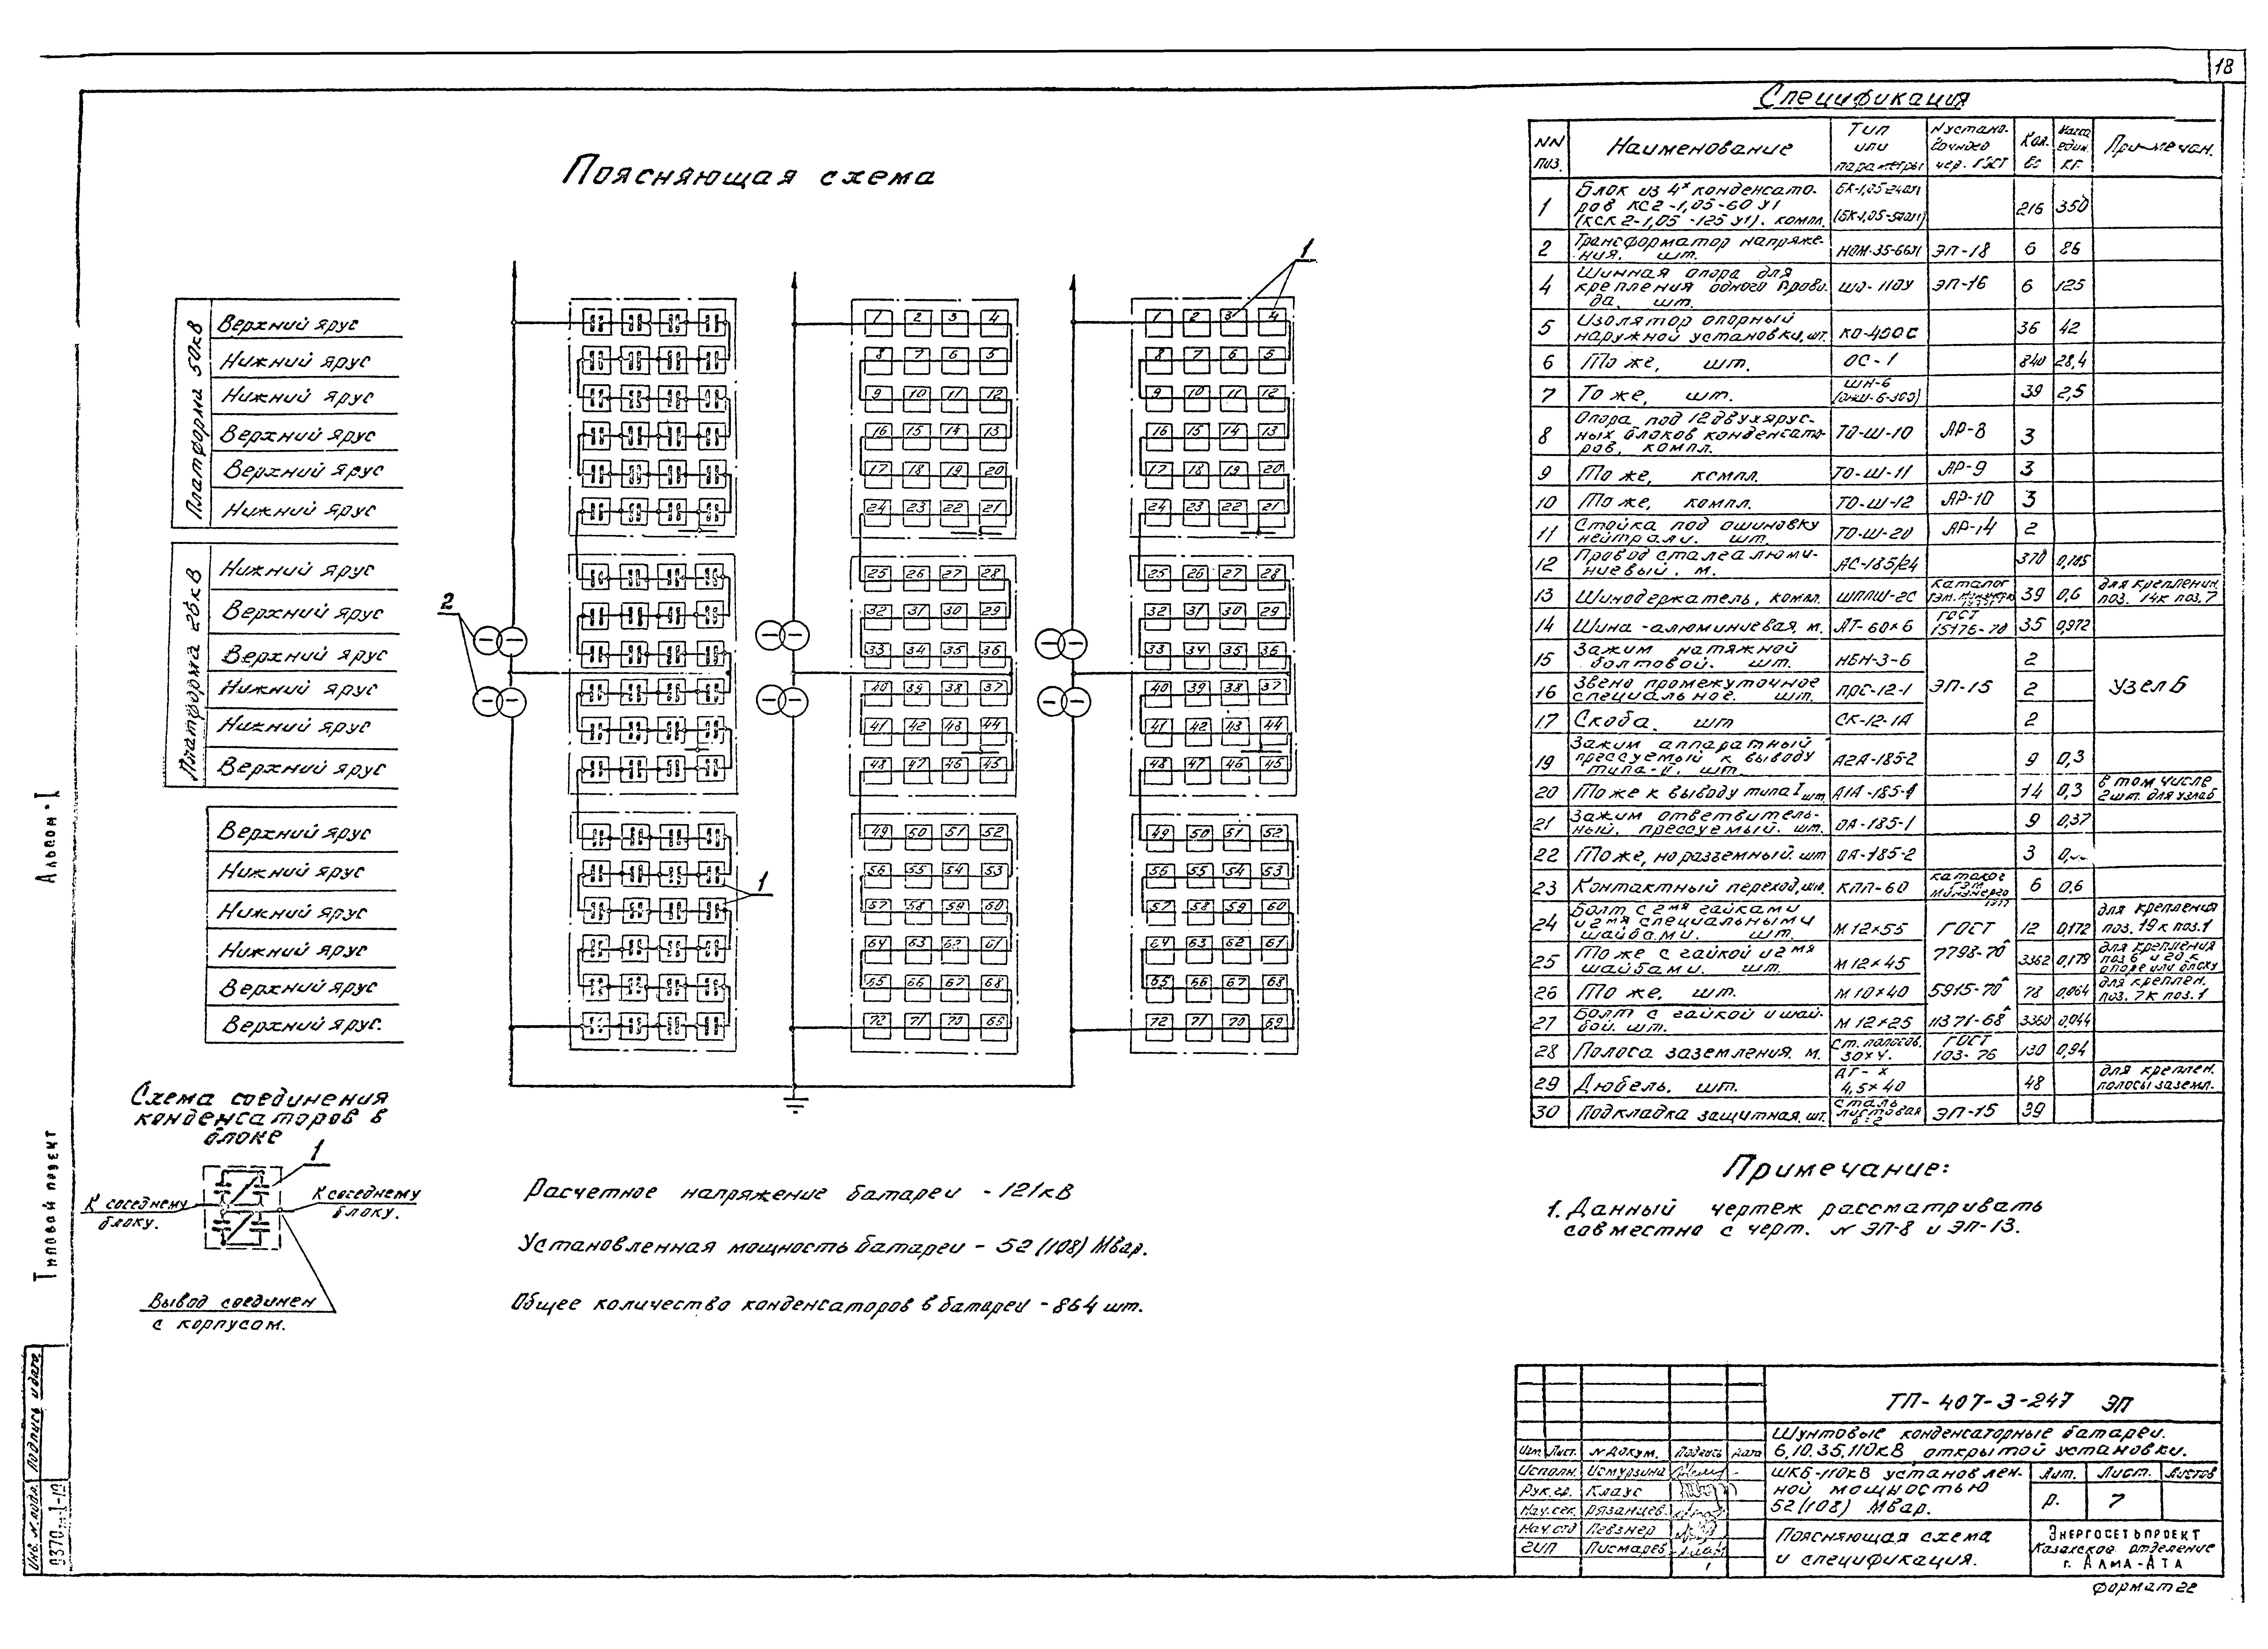 18
Спецификация
Поясняющая схема
NN поз. Наименование Тип или параметры N устано-вочного чер. ГОСТ Кол. Масса един. кг. Примечан.
1 Блок из 4х конденсато-
ров КС2-1,05-60 У1
(КСК2-1,05-125 У1). компл. БК-1,05-240У1 (БК-1,05-500У1) 216 350
2 Трансформатор напряже-
ния. шт. НОМ-35-66У1 ЭП-18 6 86
4 Шинная опора для
крепления одного прово-
да, шт. ШО-110У ЭП-16 6 125
5 Изолятор опорный
наружной установки, шт. КО-400С 36 42
6 То же, шт. ОС-1 840 28,4
7 То же, шт. ШН-6 39 2,5
8 Опора под 12 двухярус-
ных блоков конденсато-
ров, компл. ТО-Ш-10 АР-8 3
9 То же, компл. ТО-Ш-11 АР-9 3
10 То же, компл. ТО-Ш-12 АР-10 3
11 Стойка под ошиновку
нейтрали. шт. ТО-Ш-20 АР-14 2
12 Провод сталеалюми-
ниевый. м. АС-185/24 370 0,705
13 Шинодержатель, компл. ШППШ-2С каталог 39 0,6 для креплении поз. 14 к поз. 7
14 Шина-алюминиевая, м. АТ-60×6 ГОСТ 15176-70 35 0,972
15 Зажим натяжной
болтовой. шт. НБН-3-6 2
16 Звено промежуточное
специальное. шт. ПРС-12-1 ЭП-15 2 Узел Б
17 Скоба. шт СК-12-1А 2
19 Зажим аппаратный
прессуемый к выводу
типа-II. шт. А2А-185-2 9 0,3
20 То же к выводу типа I шт. А1А-185-1 14 0,3 в том числе 2шт. для узла Б
21 Зажим ответвитель-
ный, прессуемый. шт. ОА-185-1 9 0,37
22 То же, но разземный. шт ОА-185-2 3
23 Контактный переход, шт. КПП-60 каталог Минэнерго 6 0,6
24 Болт с 2мя гайками
и 2мя специальными
шайбами. шт. М12×55 ГОСТ 12 0,172 для крепления поз. 19 к поз. 1
25 То же с гайкой и 2мя
шайбами. шт. М12×45 7798-70* 3362 0,179 для крепления поз 6 и 20 к опоре или блоку
26 То же, шт. М10×40 5915-70* 78 0,064 для креплен. поз. 7 к поз. 1
27 Болт с гайкой и шай-
бой. шт. М12×25 11371-68* 3360 0,044
28 Полоса заземления. м. Ст. полосов. 30×4. ГОСТ 103-76 130 0,94
29 Дюбель. шт. ДГ-х 4,5×40 48 для креплен. полосы заземл.
30 Подкладка защитная. шт. Сталь листовая ЭП-15 39
Платформа 50кВ
Верхний ярус
Нижний ярус
Нижний ярус
Верхний ярус
Верхний ярус
Нижний ярус
Платформа 25кВ
Нижний ярус
Верхний ярус
Верхний ярус
Нижний ярус
Нижний ярус
Верхний ярус
Верхний ярус
Нижний ярус
Нижний ярус
Нижний ярус
Верхний ярус
Верхний ярус.
2
1
1
1 2 3 4 1 2 3 4
8 7 6 5 8 7 6 5
9 10 11 12 9 10 11 12
16 15 14 13 16 15 14 13
17 18 19 20 17 18 19 20
24 23 22 21 24 23 22 21
25 26 27 28 25 26 27 28
32 31 30 29 32 31 30 29
33 34 35 36 33 34 35 36
40 39 38 37 40 39 38 37
41 42 43 44 41 42 43 44
48 47 46 45 48 47 46 45
49 50 51 52 49 50 51 52
56 55 54 53 56 55 54 53
57 58 59 60 57 58 59 60
64 63 62 61 64 63 62 61
65 66 67 68 65 66 67 68
72 71 70 69 72 71 70 69
Схема соединения
конденсаторов в
блоке
1
К соседнему
блоку.
К соседнему
блоку.
Вывод соединен
с корпусом.
Расчетное напряжение батареи - 121кВ
Установленная мощность батареи - 52 (108) Мвар.
Общее количество конденсаторов в батареи - 864 шт.
Примечание:
1. Данный чертеж рассматривать
совместно с черт. N ЭП-8 и ЭП-13.
Альбом-I
Типовой проект
Инв. N подл. Подпись и дата
ТП-407-3-247 ЭП
Шунтовые конденсаторные батареи.
6,10.35,110кВ открытой установки.
Изм. Лист. N докум. Подпись Дата
Исполн. Исмурзина
Рук.гр. Клаус
Нач.сек. Рязанцев.
Нач.отд Певзнер
ГИП Писмарев
ШКБ-110кВ установлен-
ной мощностью
52(108) Мвар.
Лит. Лист. Листов
р. 7
Поясняющая схема
и спецификация.
Энергосетьпроект
Казахское отделение
г. Алма-Ата
Формат 22